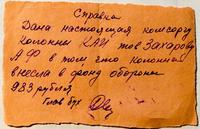 Справка
Дана настоящая комсоргу
Колонны КАИ тов Захарову
А Ф в том что колонна
внесла в фонд обороны
983 рубля
Глав бух